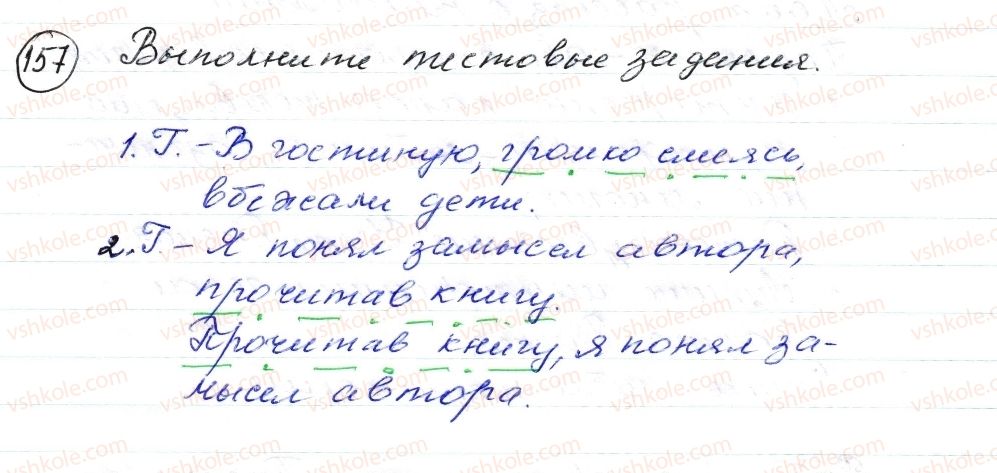 157 Выполните тестовые задания.
1. Г. - В гостиную, громко смеясь,
вбежали дети.
2. Г - Я понял замысел автора,
прочитав книгу.
Прочитав книгу, я понял за-
мысел автора.